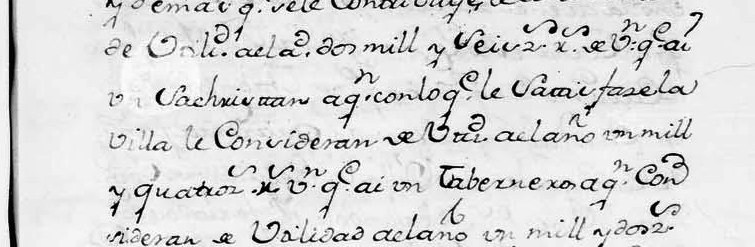 y demas q.e se le Contribuye
de Utili.d al a.o dos mill y Seis.s r.s de V.n q.e ai
un Sachristtan a q.n con lo q.e le Sattisfaze la
villa le Consideran de Utt.d al año un mill
y quatroz.s r.s V.n q.e ai un Tabernero a q.n Con
sideran de Utilidad al año un mill y dos.s